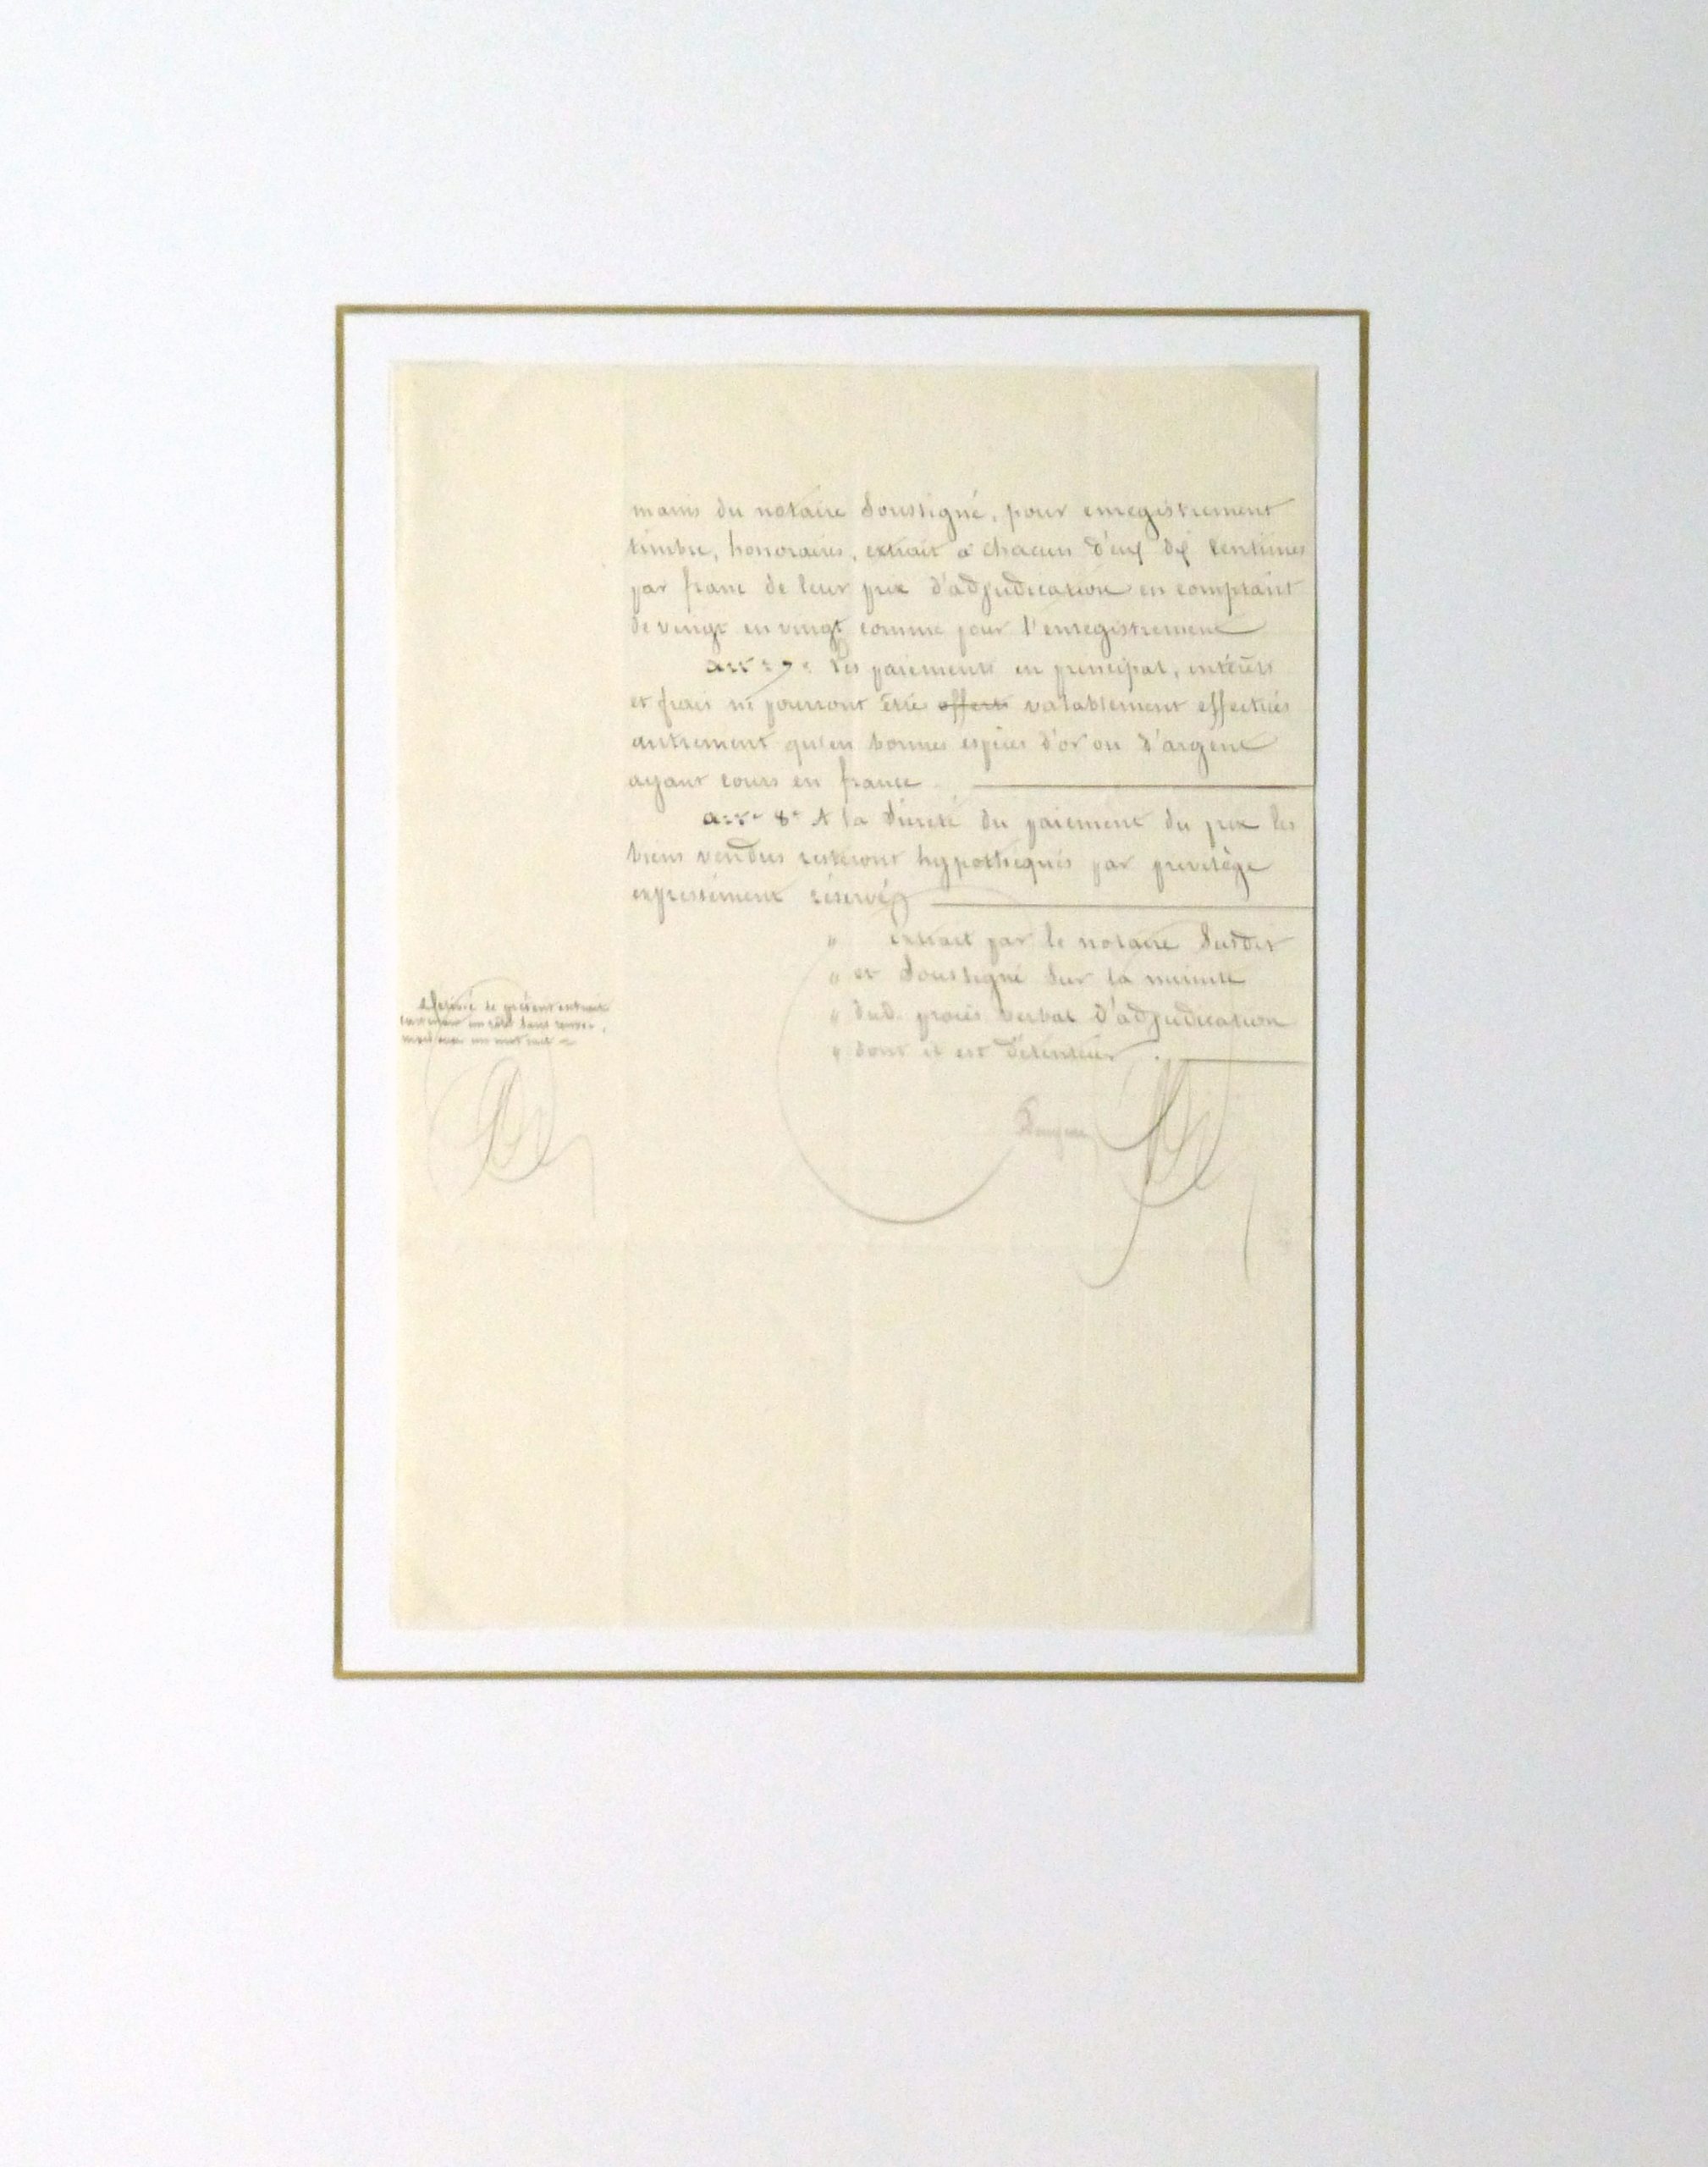 mains du notaire Soussigné, pour enregistrement
timbre, honoraires, extrait à chacun d'eux dix centimes
par franc de leur prix d'adjudication en comptant
de vingt en vingt comme pour l'enregistrement
art. 7e Les paiements en principal, intérêts
et frais ne pourront être offerts valablement effectués
autrement qu'en bonnes espèces d'or ou d'argent
ayant cours en france
art. 8e A la Sûreté du paiement du prix les
biens vendus resteront hypothéqués par privilège
expressément réservé
" extrait par le notaire Susdit
" et Soussigné Sur la minute
" dud. procès verbal d'adjudication
" dont il est détenteur.
le présent extrait
un rôle Sans renvoi,
mot nul